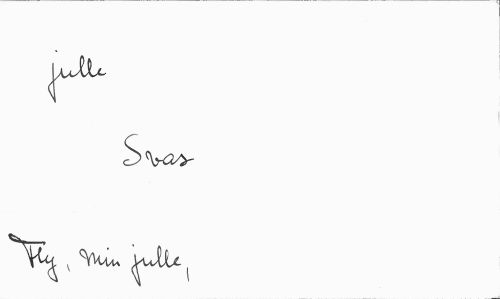 julle
Svas
Fly, min julle,